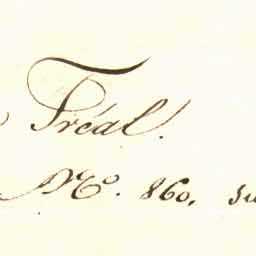 Fréal!
No. 860, su